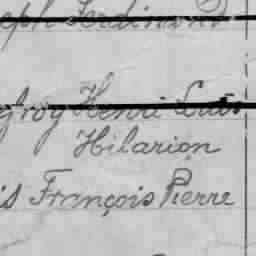 eph Ferdinand
froy Henri Louis
Hilarion
is François Pierre